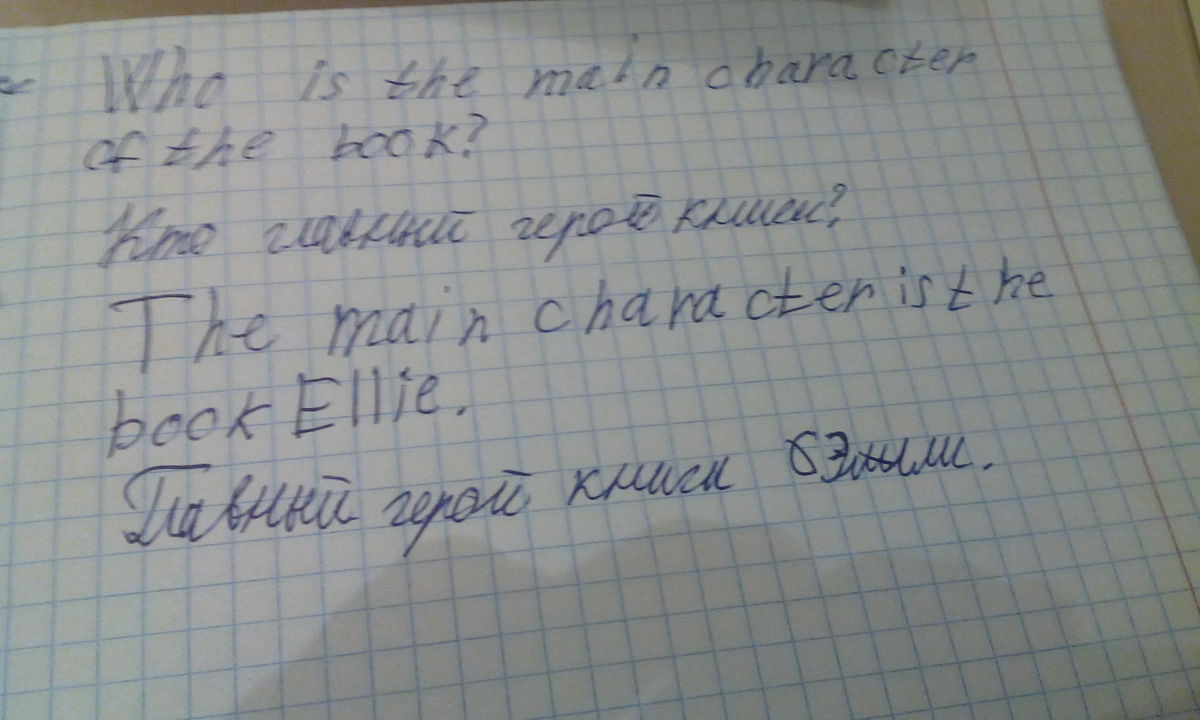 Who is the main character
of the book?
Кто главный герой книги?
The main character is the
book Ellie.
Главный герой книги Элли.